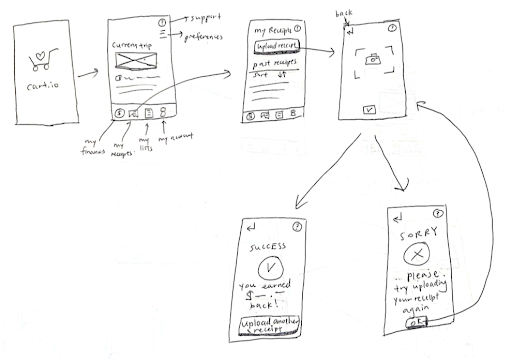 cart.io
?
support
preferences
current trip
$
my finances
my receipts
my lists
my account
my Receipts
?
upload receipt
past receipts
sort
$
back
?
SUCCESS
you earned
$—.—
back!
upload another
receipt
?
SORRY
... please
try uploading
your receipt
again
OK